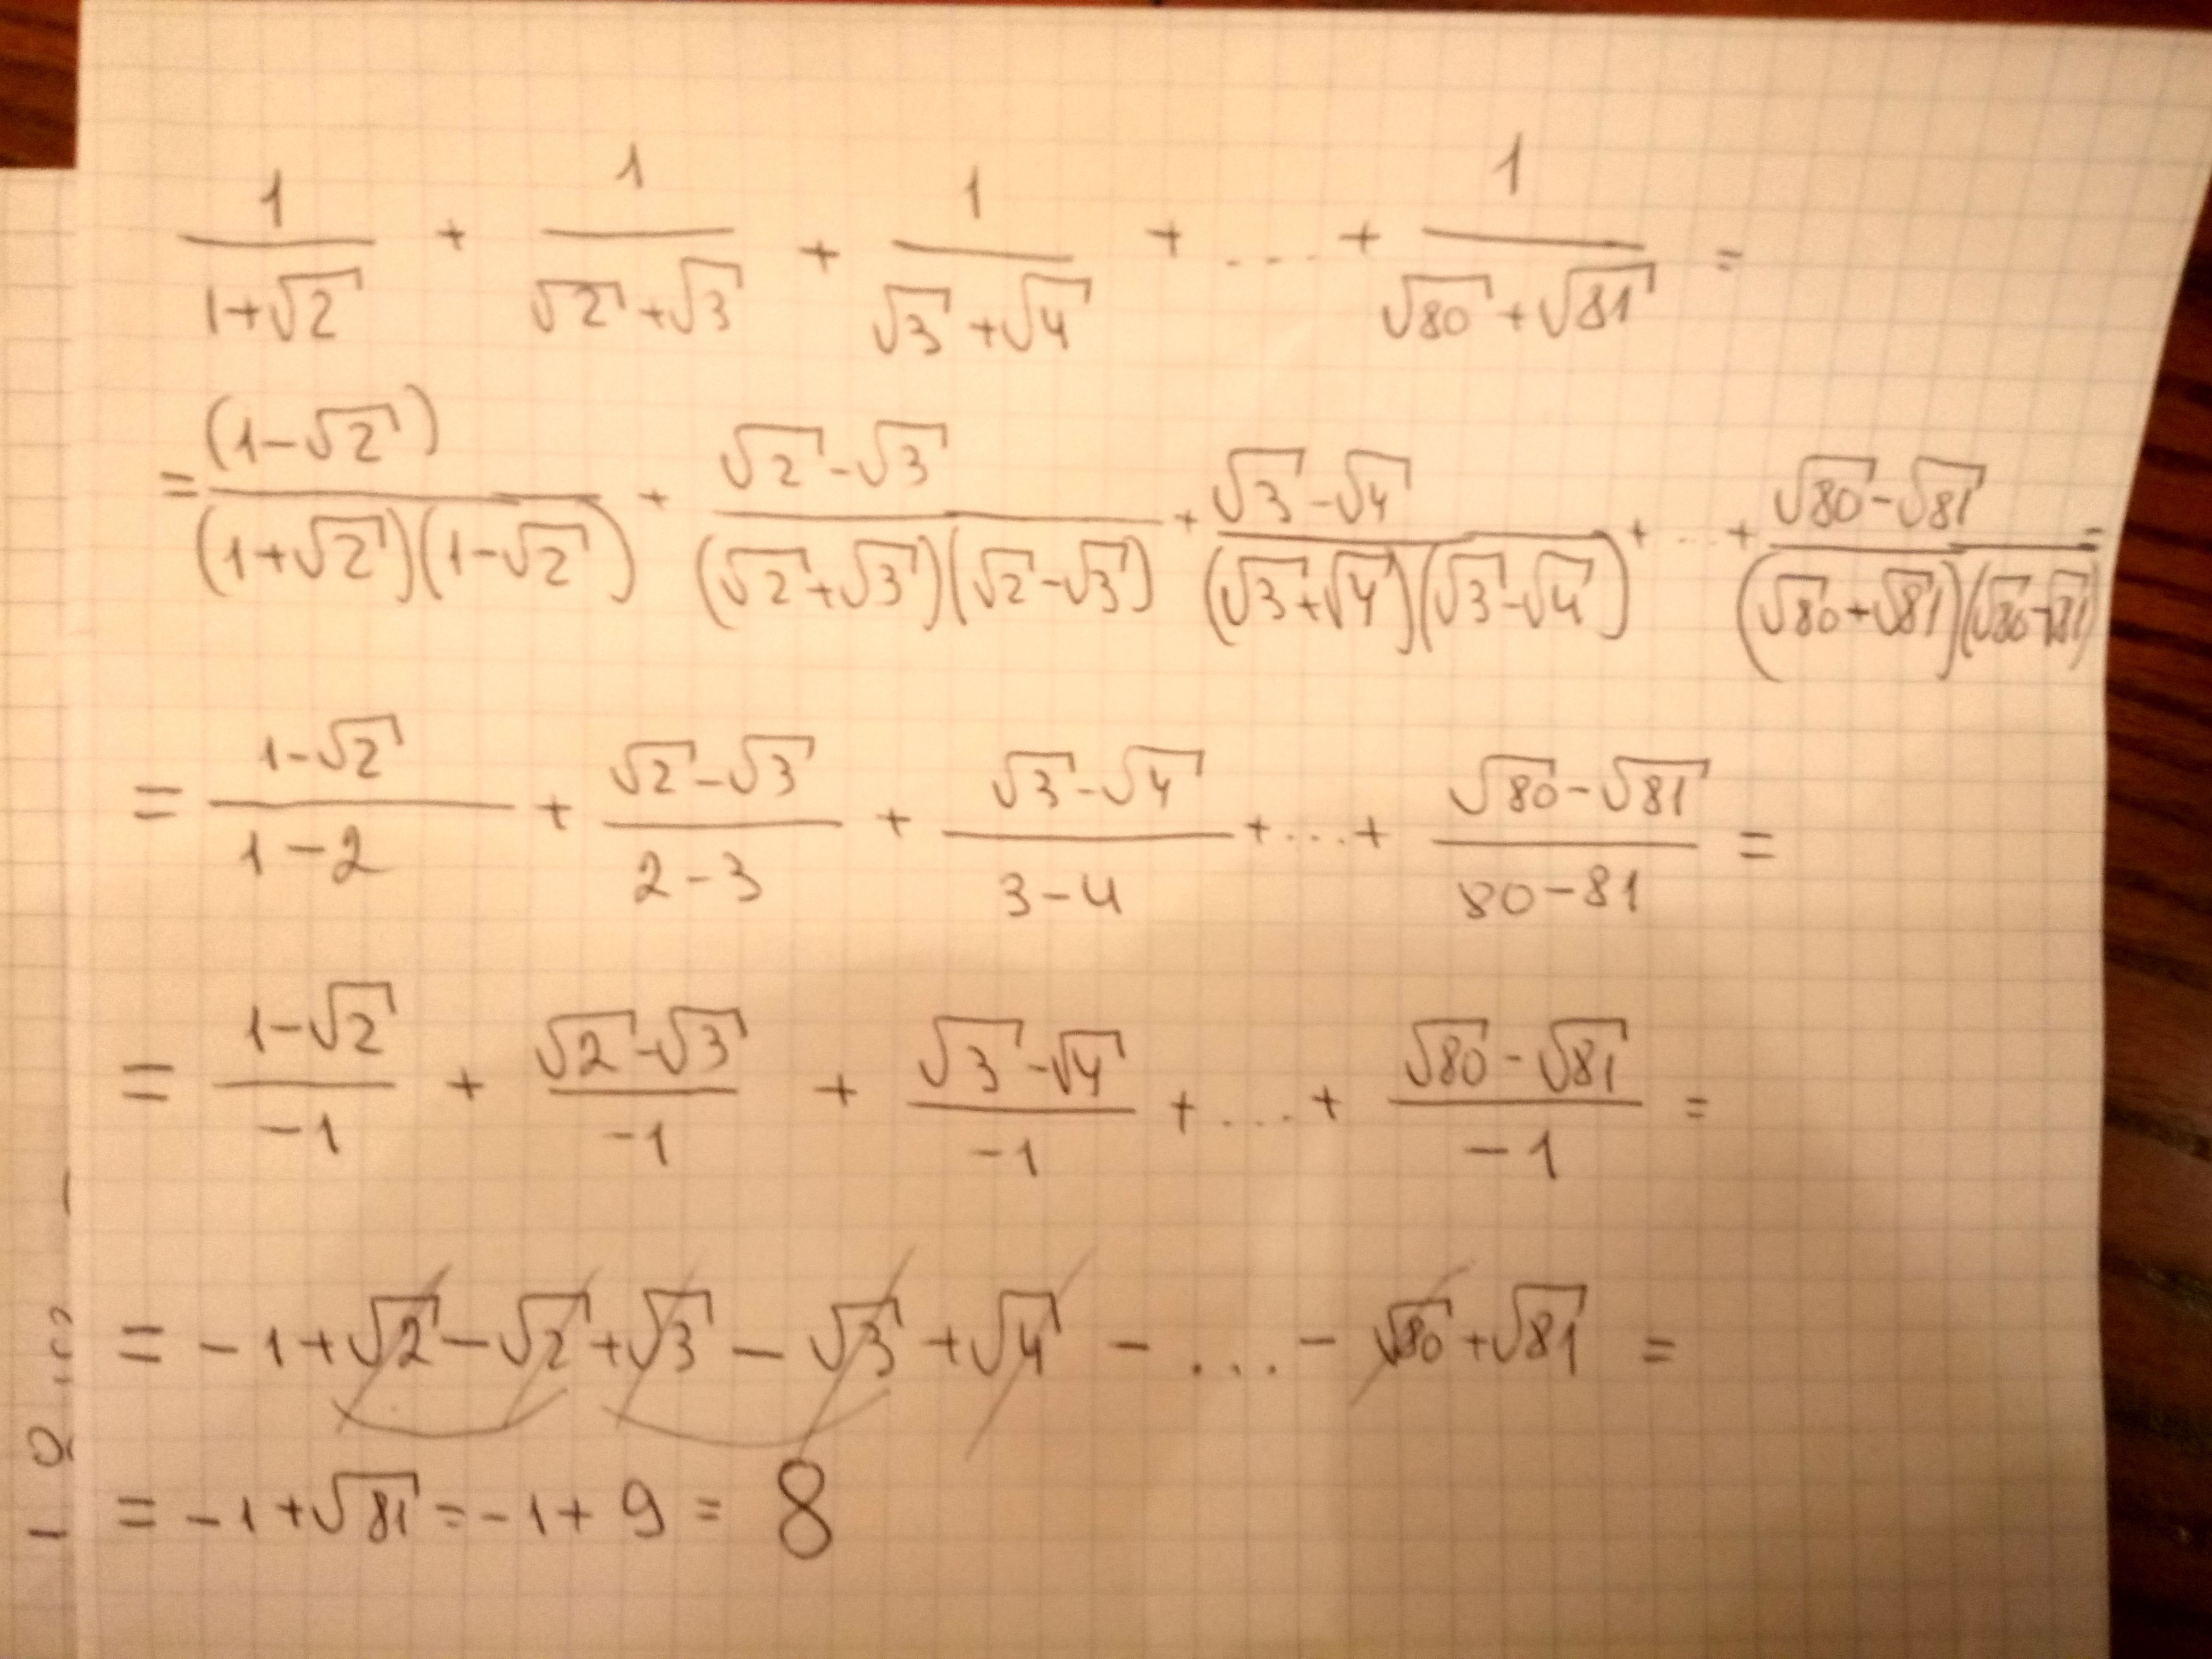 1/(1+√2) + 1/(√2+√3) + 1/(√3+√4) + ... + 1/(√80+√81) =
= (1-√2)/((1+√2)(1-√2)) + (√2-√3)/((√2+√3)(√2-√3)) + (√3-√4)/((√3+√4)(√3-√4)) + ... + (√80-√81)/((√80+√81)(√80-√81)) =
= (1-√2)/(1-2) + (√2-√3)/(2-3) + (√3-√4)/(3-4) + ... + (√80-√81)/(80-81) =
= (1-√2)/(-1) + (√2-√3)/(-1) + (√3-√4)/(-1) + ... + (√80-√81)/(-1) =
= -1+√2-√2+√3-√3+√4 - ... - √80+√81 =
= -1+√81 = -1+9 = 8